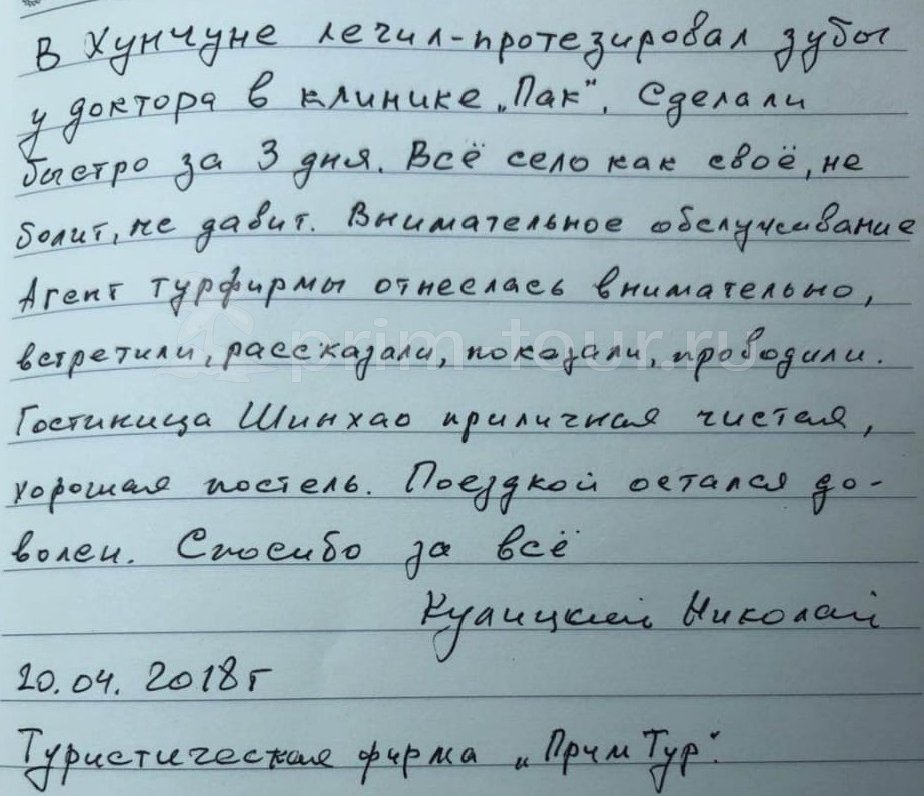 В Хунчуне лечил-протезировал зубы
у доктора в клинике „Пак“. Сделали
быстро за 3 дня. Всё село как своё, не
болит, не давит. Внимательное обслуживание
Агент турфирмы отнеслась внимательно,
prim-tour.ru
встретили, рассказали, показали, проводили.
Гостиница Шинхао приличная чистая,
хорошая постель. Поездкой остался до-
волен. Спосибо за всё
Николай
20.04.2018г
Туристическая фирма „ПримТур“.